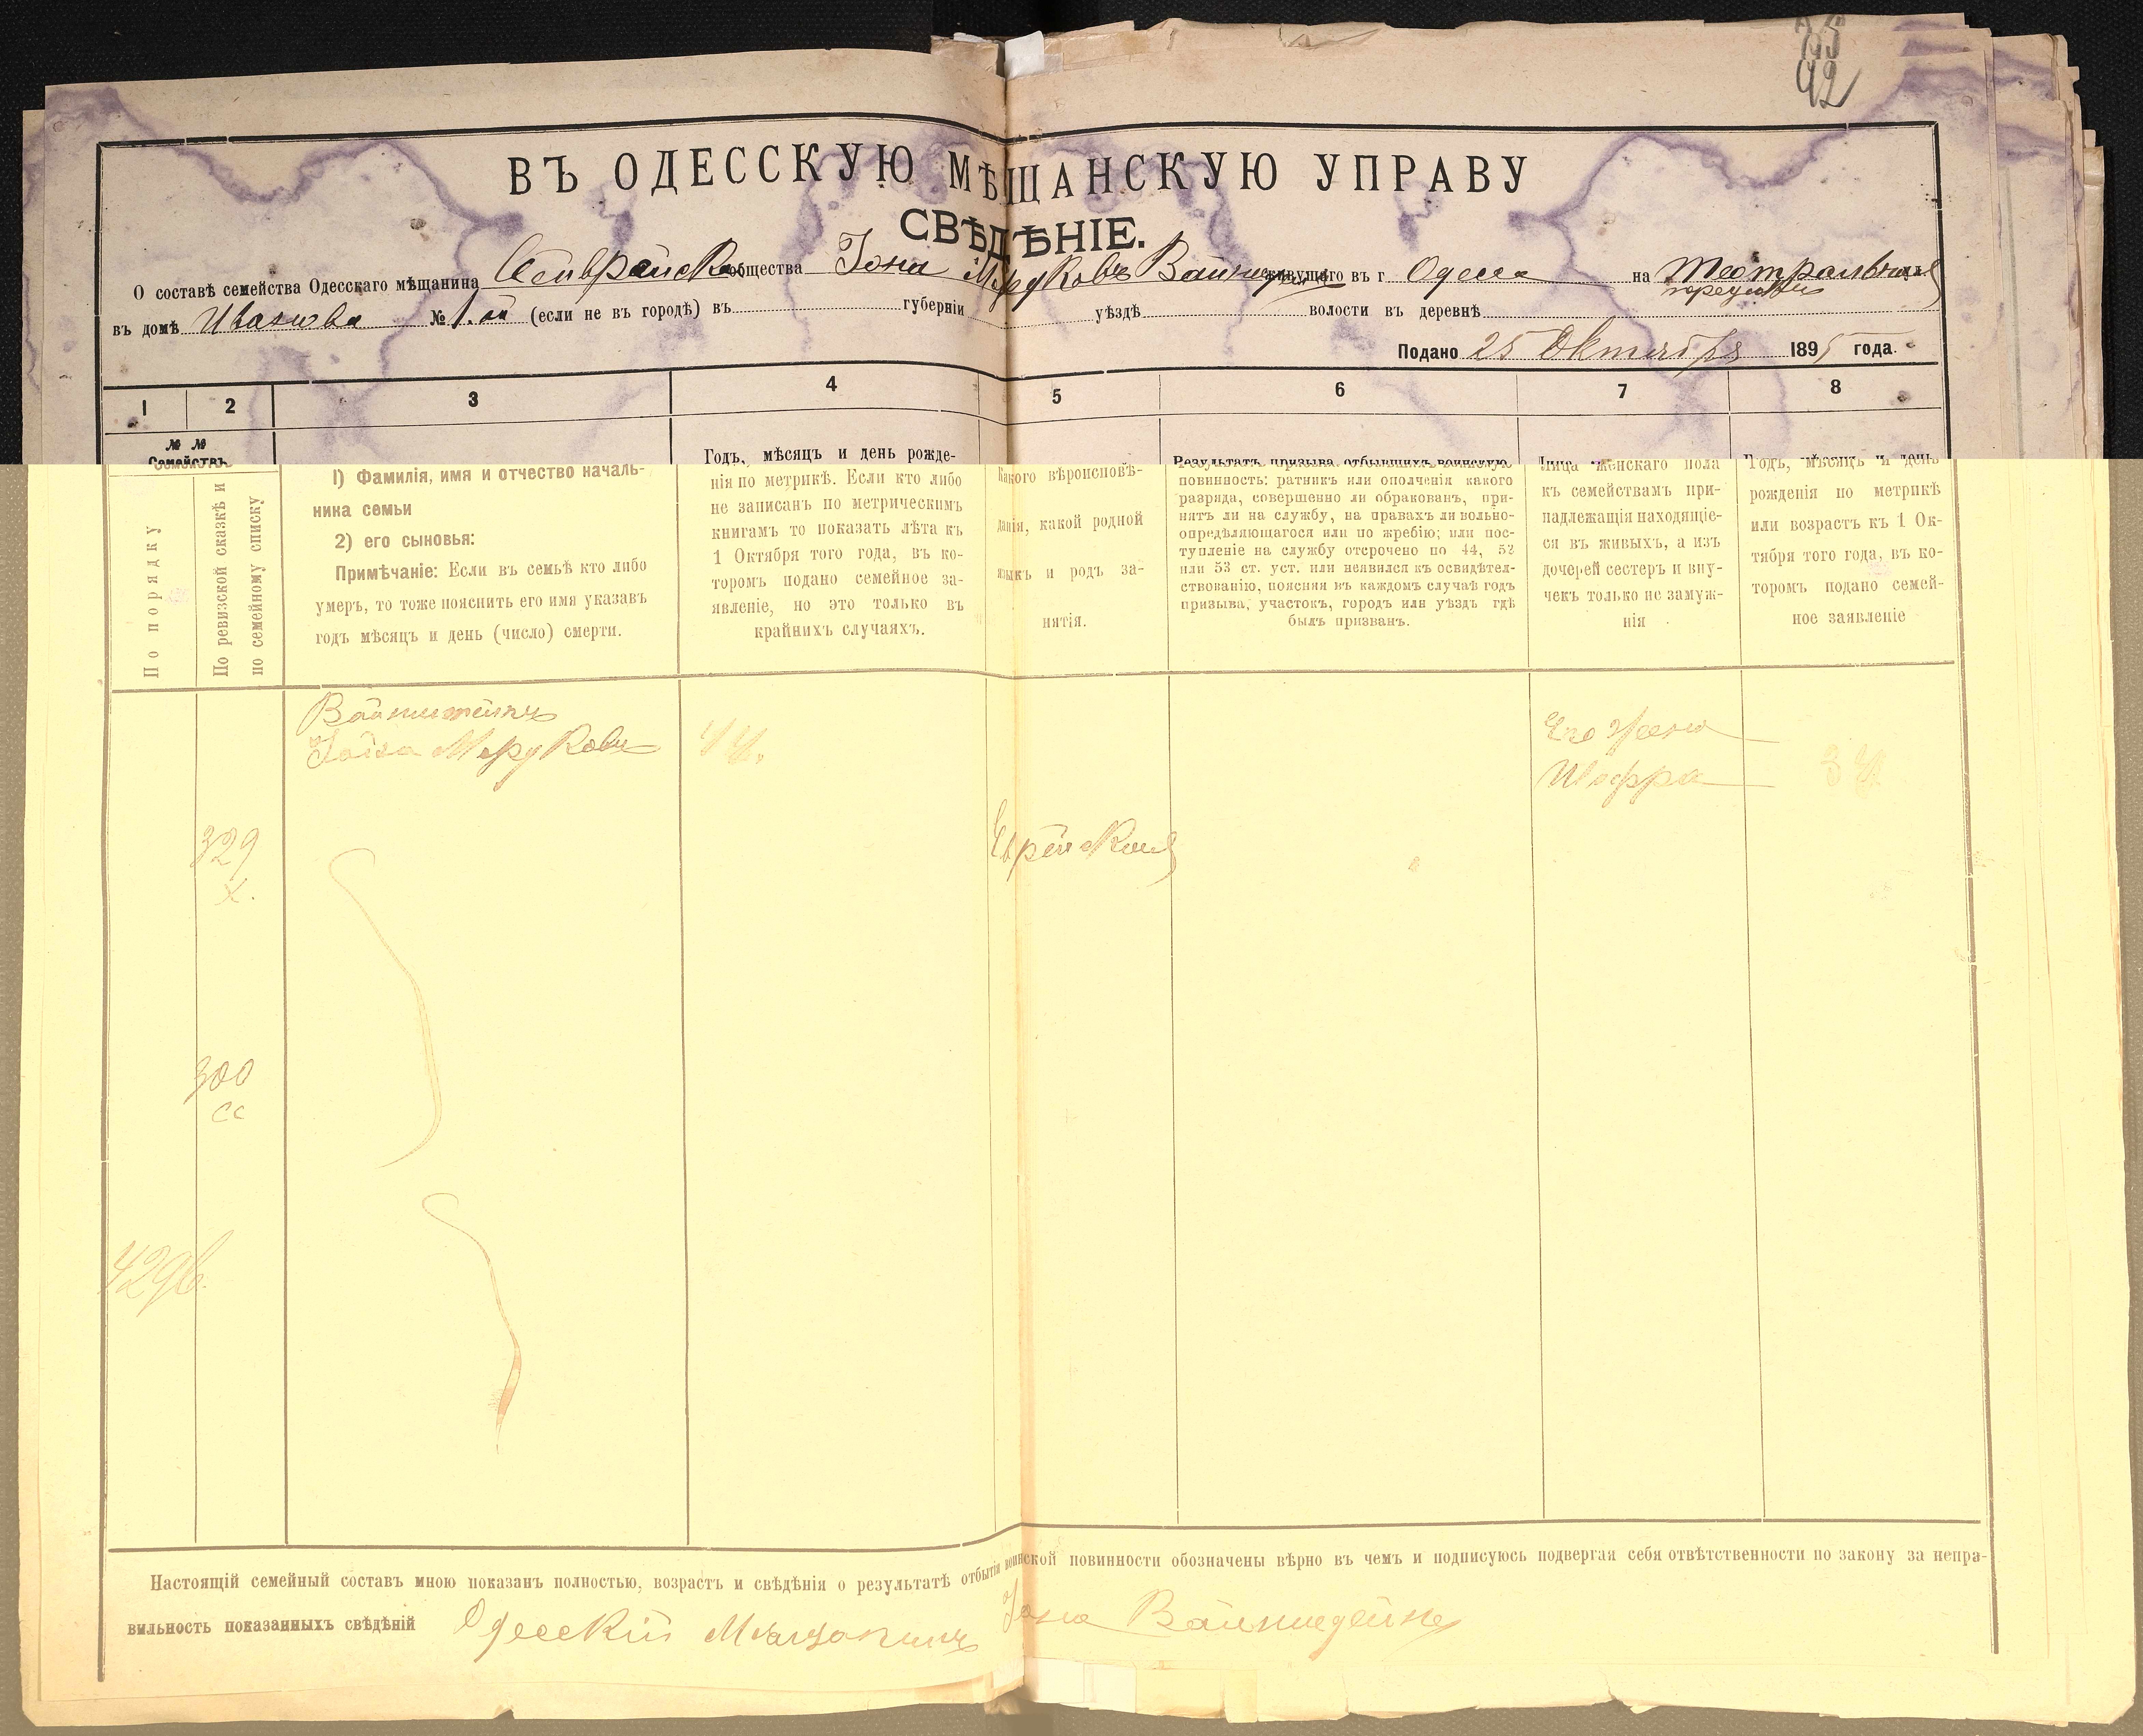 92
ВЪ ОДЕССКУЮ МѢЩАНСКУЮ УПРАВУ
СВѢДѢНІЕ.
О составѣ семейства Одесскаго мѣщанина общества Іона Мордковъ живущаго въ г Одесса на Театральномъ
въ домѣ Иванова № 1. (если не въ городѣ) въ губерніи уѣздѣ волости въ деревнѣ
Подано 25 Октября 1895 года.
1 2 3 4 5 6 7 8
№ №
Семействъ
По порядку
По ревизской сказкѣ и
по семейному списку
1) Фамилія, имя и отчество началь-
ника семьи
2) его сыновья:
Примѣчаніе: Если въ семьѣ кто либо
умеръ, то тоже пояснить его имя указавъ
годъ мѣсяцъ и день (число) смерти.
Годъ, мѣсяцъ и день рожде-
нія по метрикѣ. Если кто либо
не записанъ по метрическимъ
книгамъ то показать лѣта къ
1 Октября того года, въ ко-
торомъ подано семейное за-
явленіе, но это только въ
крайнихъ случаяхъ.
Какого вѣроисповѣ-
данія, какой родной
языкъ и родъ за-
нятія.
Результатъ призыва отбывшихъ воинскую
повинность: ратникъ или ополченія какого
разряда, совершенно ли обракованъ, при-
нятъ ли на службу, на правахъ ли вольно-
опредѣляющагося или по жребію; или пос-
тупленіе на службу отсрочено по 44, 52
или 53 ст. уст. или неявился къ освидѣтел-
ствованію, поясняя въ каждомъ случаѣ годъ
призыва, участокъ, городъ или уѣздъ гдѣ
былъ призванъ.
Лица женскаго пола
къ семействамъ при-
надлежащія находящіе-
ся въ живыхъ, а изъ
дочерей сестеръ и вну-
чекъ только не замуж-
нія
Годъ, мѣсяцъ и день
рожденія по метрикѣ
или возрастъ къ 1 Ок-
тября того года, въ ко-
торомъ подано семей-
ное заявленіе
Вайнштейнъ
Мордковъ
Его Жена
Шифра
329
Х.
Еврейской
300
сс
Настоящій семейный составъ мною показанъ полностью, возрастъ и свѣдѣнія о результатѣ отбытіи воинской повинности обозначены вѣрно въ чемъ и подписуюсь подвергая себя отвѣтственности по закону за непра-
вильность показанныхъ свѣдѣній Одесскій Мѣщанинъ Іона Вайншдейнъ